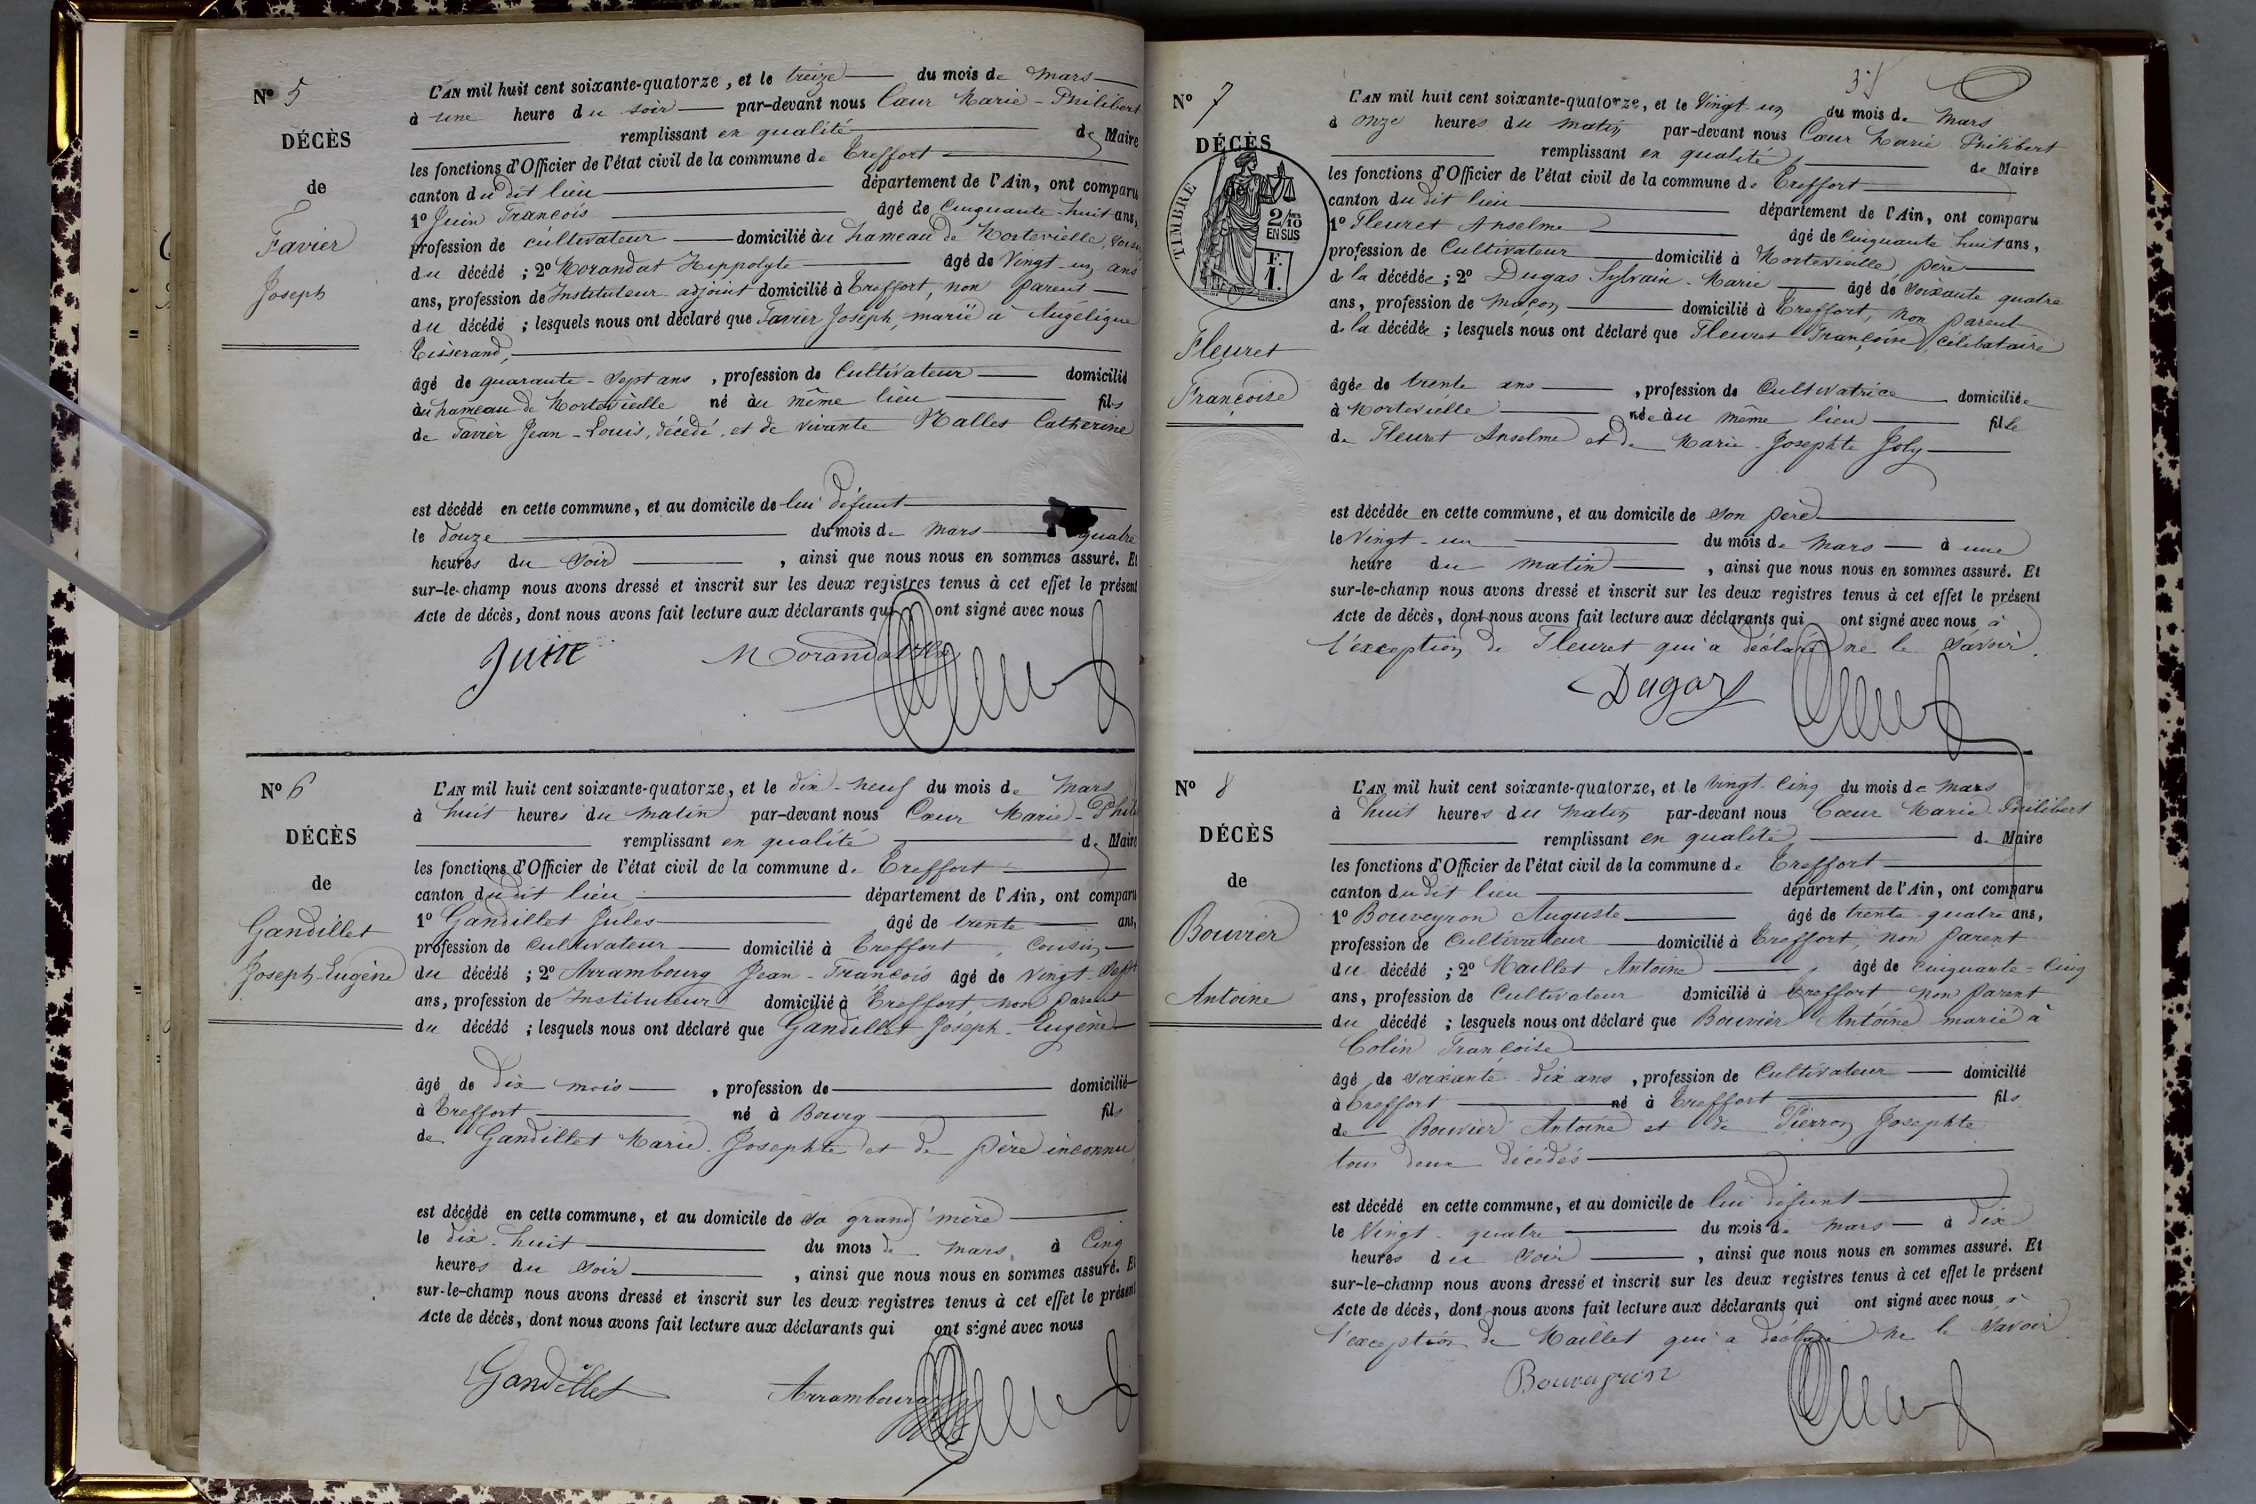 N° 5
DÉCÈS
de
Favier
Joseph
L'AN mil huit cent soixante-quatorze, et le treize du mois de mars
à une heure du soir par-devant nous Cœur Marie-Philibert
remplissant en qualité de Maire
les fonctions d'Officier de l'état civil de la commune de Treffort
canton du dit lieu département de l'Ain, ont comparu
1° Juin François âgé de Cinquante-huit ans,
profession de cultivateur domicilié au hameau de Mortevielle,
du décédé ; 2° Morandat Hippolyte âgé de Vingt-un ans
ans, profession de Instituteur-adjoint domicilié à Treffort, non parent
du décédé ; lesquels nous ont déclaré que Favier Joseph, marié à Angélique
Tisserand,
âgé de quarante-sept ans, profession de Cultivateur domicilié
au hameau de Mortevieille né au même lieu fils
de Favier Jean-Louis, décédé, et de vivante Catherine
est décédé en cette commune, et au domicile de lui défunt
le douze du mois de mars quatre
heures du soir, ainsi que nous nous en sommes assuré. Et
sur-le-champ nous avons dressé et inscrit sur les deux registres tenus à cet effet le présent
Acte de décès, dont nous avons fait lecture aux déclarants qui ont signé avec nous
Juin Morandat
N° 6
DÉCÈS
de
Gandillet
Joseph-Eugène
L'AN mil huit cent soixante-quatorze, et le dix-neuf du mois de Mars
à huit heures du matin par-devant nous Cœur Marie-Phili
remplissant en qualité de Maire
les fonctions d'Officier de l'état civil de la commune de Treffort
canton du dit lieu département de l'Ain, ont comparu
1° Gandillet Jules âgé de trente ans,
profession de cultivateur domicilié à Treffort, cousin
du décédé ; 2° Arrambourg Jean-François âgé de vingt-sept
ans, profession de Instituteur domicilié à Treffort non parent
du décédé ; lesquels nous ont déclaré que Gandillet Joseph-Eugène
âgé de dix mois, profession de domicilié
à Treffort né à Bourg fils
de Gandillet Marie-Josephte et de père inconnu
est décédé en cette commune, et au domicile de sa grand'mère
le dix-huit du mois de mars, à Cinq
heures du soir, ainsi que nous nous en sommes assuré. Et
sur-le-champ nous avons dressé et inscrit sur les deux registres tenus à cet effet le présent
Acte de décès, dont nous avons fait lecture aux déclarants qui ont signé avec nous
Gandillet Arrambourg
N° 7
DÉCÈS
de
TIMBRE
2/10
EN SUS
F.
1.
Fleuret
Françoise
L'AN mil huit cent soixante-quatorze, et le Vingt-un du mois de Mars
à onze heures du matin par-devant nous Cœur Marie Philibert
remplissant en qualité de Maire
les fonctions d'Officier de l'état civil de la commune de Treffort
canton du dit lieu département de l'Ain, ont comparu
1° Fleuret Anselme âgé de Cinquante huit ans,
profession de Cultivateur domicilié à Mortevieille, père
de la décédée ; 2° Dugas Sylvain-Marie âgé de soixante quatre
ans, profession de maçon domicilié à Treffort, non parent
de la décédée ; lesquels nous ont déclaré que Fleuret Françoise, célibataire
âgée de trente ans, profession de Cultivatrice domiciliée
à Mortevielle née au même lieu fille
de Fleuret Anselme et de Marie-Josephte Joly
est décédée en cette commune, et au domicile de son père
le Vingt-un du mois de mars à une
heure du matin, ainsi que nous nous en sommes assuré. Et
sur-le-champ nous avons dressé et inscrit sur les deux registres tenus à cet effet le présent
Acte de décès, dont nous avons fait lecture aux déclarants qui ont signé avec nous à
l'exception de Fleuret qui a déclaré ne le savoir.
Dugas
N° 8
DÉCÈS
de
Bouvier
Antoine
L'AN mil huit cent soixante-quatorze, et le vingt-cinq du mois de mars
à huit heures du matin par-devant nous Cœur Marie-Philibert
remplissant en qualité de Maire
les fonctions d'Officier de l'état civil de la commune de Treffort
canton du dit lieu département de l'Ain, ont comparu
1° Bouveyron Auguste âgé de trente-quatre ans,
profession de Cultivateur domicilié à Treffort, non parent
du décédé ; 2° Maillet Antoine, âgé de cinquante-cinq
ans, profession de Cultivateur domicilié à Treffort non parent
du décédé ; lesquels nous ont déclaré que Bouvier Antoine marié à
Colin Françoise
âgé de soixante-dix ans, profession de Cultivateur domicilié
à Treffort né à Treffort fils
de Bouvier Antoine et de Pierron Josephte
tous deux décédés
est décédé en cette commune, et au domicile de lui défunt
le Vingt-quatre du mois de mars à dix
heures du soir, ainsi que nous nous en sommes assuré. Et
sur-le-champ nous avons dressé et inscrit sur les deux registres tenus à cet effet le présent
Acte de décès, dont nous avons fait lecture aux déclarants qui ont signé avec nous à
l'exception de Maillet qui a déclaré ne le savoir
Bouveyron